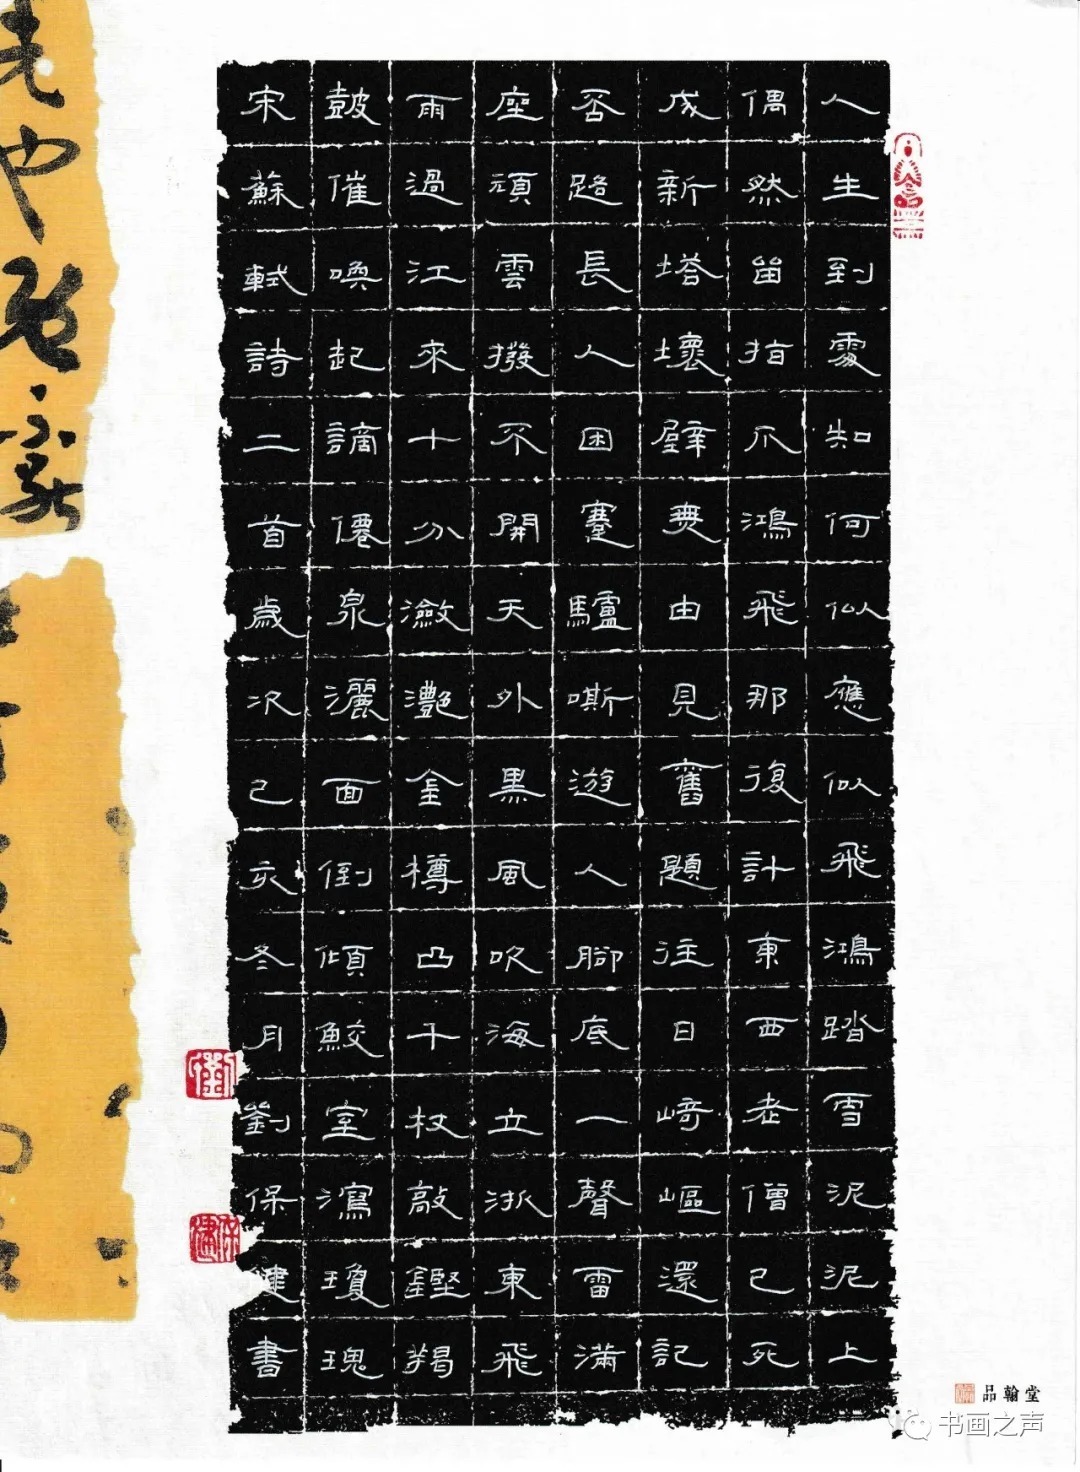 人生到處知何似應似飛鴻踏雪泥泥上
偶然留指爪鴻飛那復計東西老僧已死
成新塔壞壁無由見舊題往日崎嶇還記
否路長人困蹇驢嘶遊人腳底一聲雷滿
座頑雲撥不開天外黑風吹海立浙東飛
雨過江來十分瀲灩金樽凸千杖敲鏗羯
鼓催喚起謫僊泉灑面倒傾鮫室瀉瓊瑰
宋蘇軾詩二首歲次己亥冬月劉保健書
品翰堂
书画之声